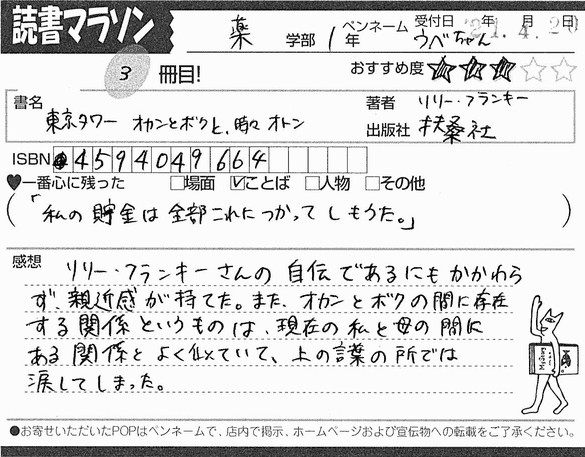 読書マラソン
薬 学部 1年
ペンネーム うべちゃん
受付日 '21.4.20 年 月 日
3 冊目!
おすすめ度 ★★★☆☆
書名
東京タワー オカンとボクと、時々オトン
著者 リリー・フランキー
出版社 扶桑社
ISBN 4594049664
♥一番心に残った □場面 ☑ことば □人物 □その他
(「私の貯金は全部これにつかってしもうた。」)
感想
リリー・フランキーさんの自伝であるにもかかわら
ず、親近感が持てた。また、オカンとボクの間に存在
する関係というものは、現在の私と母の間に
ある関係とよく似ていて、上の言葉の所では
涙してしまった。
●お寄せいただいたPOPはペンネームで、店内で掲示、ホームページおよび宣伝物への転載をご了承ください。